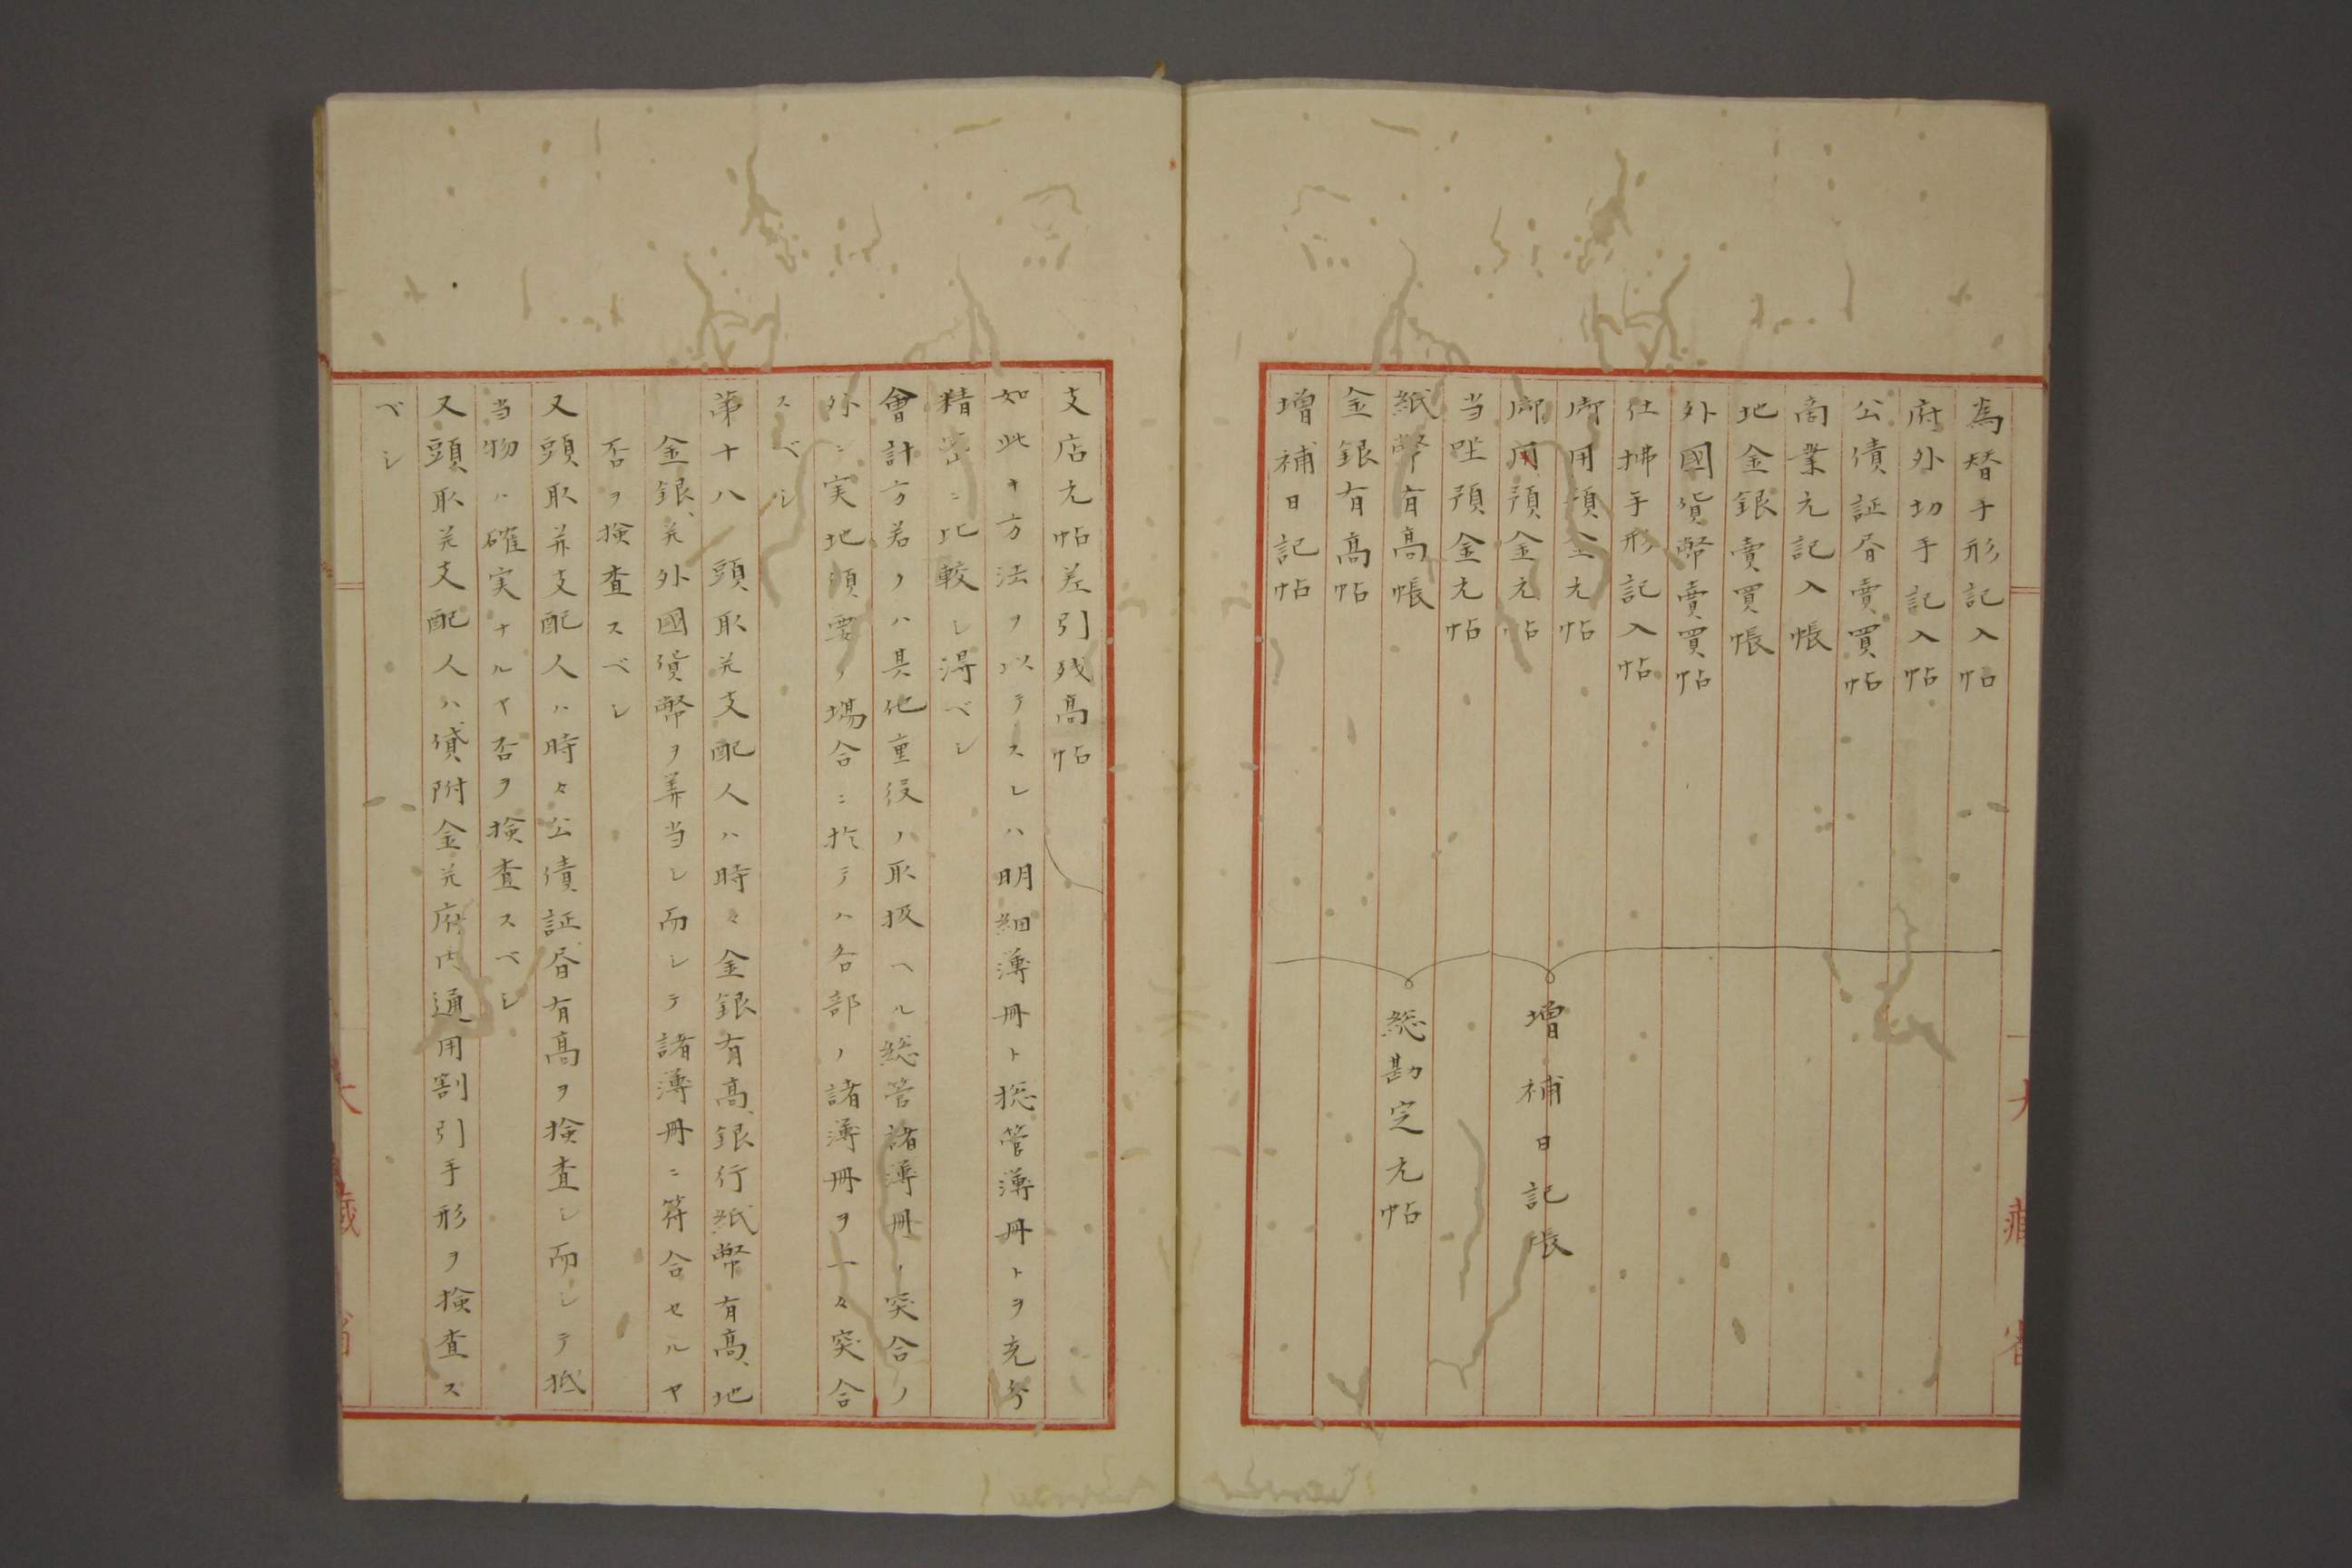 為替手形記入帖
府外切手記入帖
公債証書賣買帖
商業元記入帳
地金銀賣買帳
外國貨幣賣買帖
仕拂手形記入帖
御用預金元帖
御用預金元帖
当坐預金元帖
紙幣有高帳
金銀有高帖
増補日記帖
増補日記帳
総勘定元帖
支店元帖差引残高帖
如此キ方法ヲ以テスレハ明細薄冊ト総管薄冊トヲ充分
精密ニ比較シ得ベシ
會計方若ノハ其他重役ノ取扱ヘル総管諸薄冊ノ突合ノ
外ニ実地須要ノ場合ニ於テハ各部ノ諸薄冊ヲ一々突合
スベシ
第十八 頭取并支配人ハ時々金銀有高、銀行紙幣有高、地
金銀、并外國貨幣ヲ算当シ而シテ諸薄冊ニ符合セルヤ
否ヲ検査スベシ
又頭取并支配人ハ時々公債証書有高ヲ検査シ而シテ抵
当物ハ確実ナルヤ否ヲ検査スベシ
又頭取并支配人ハ貸附金并府内通用割引手形ヲ検査ス
ベシ
大藏省